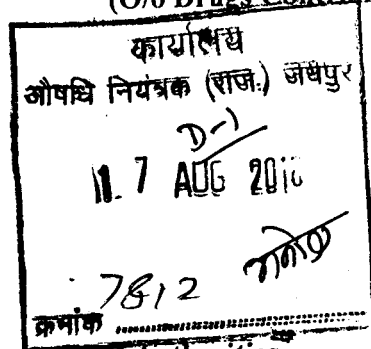 (O/o Drugs
कार्यालय
औषधि नियंत्रक (राज.) जयपुर
D-1
17 AUG
7812
क्रमांक